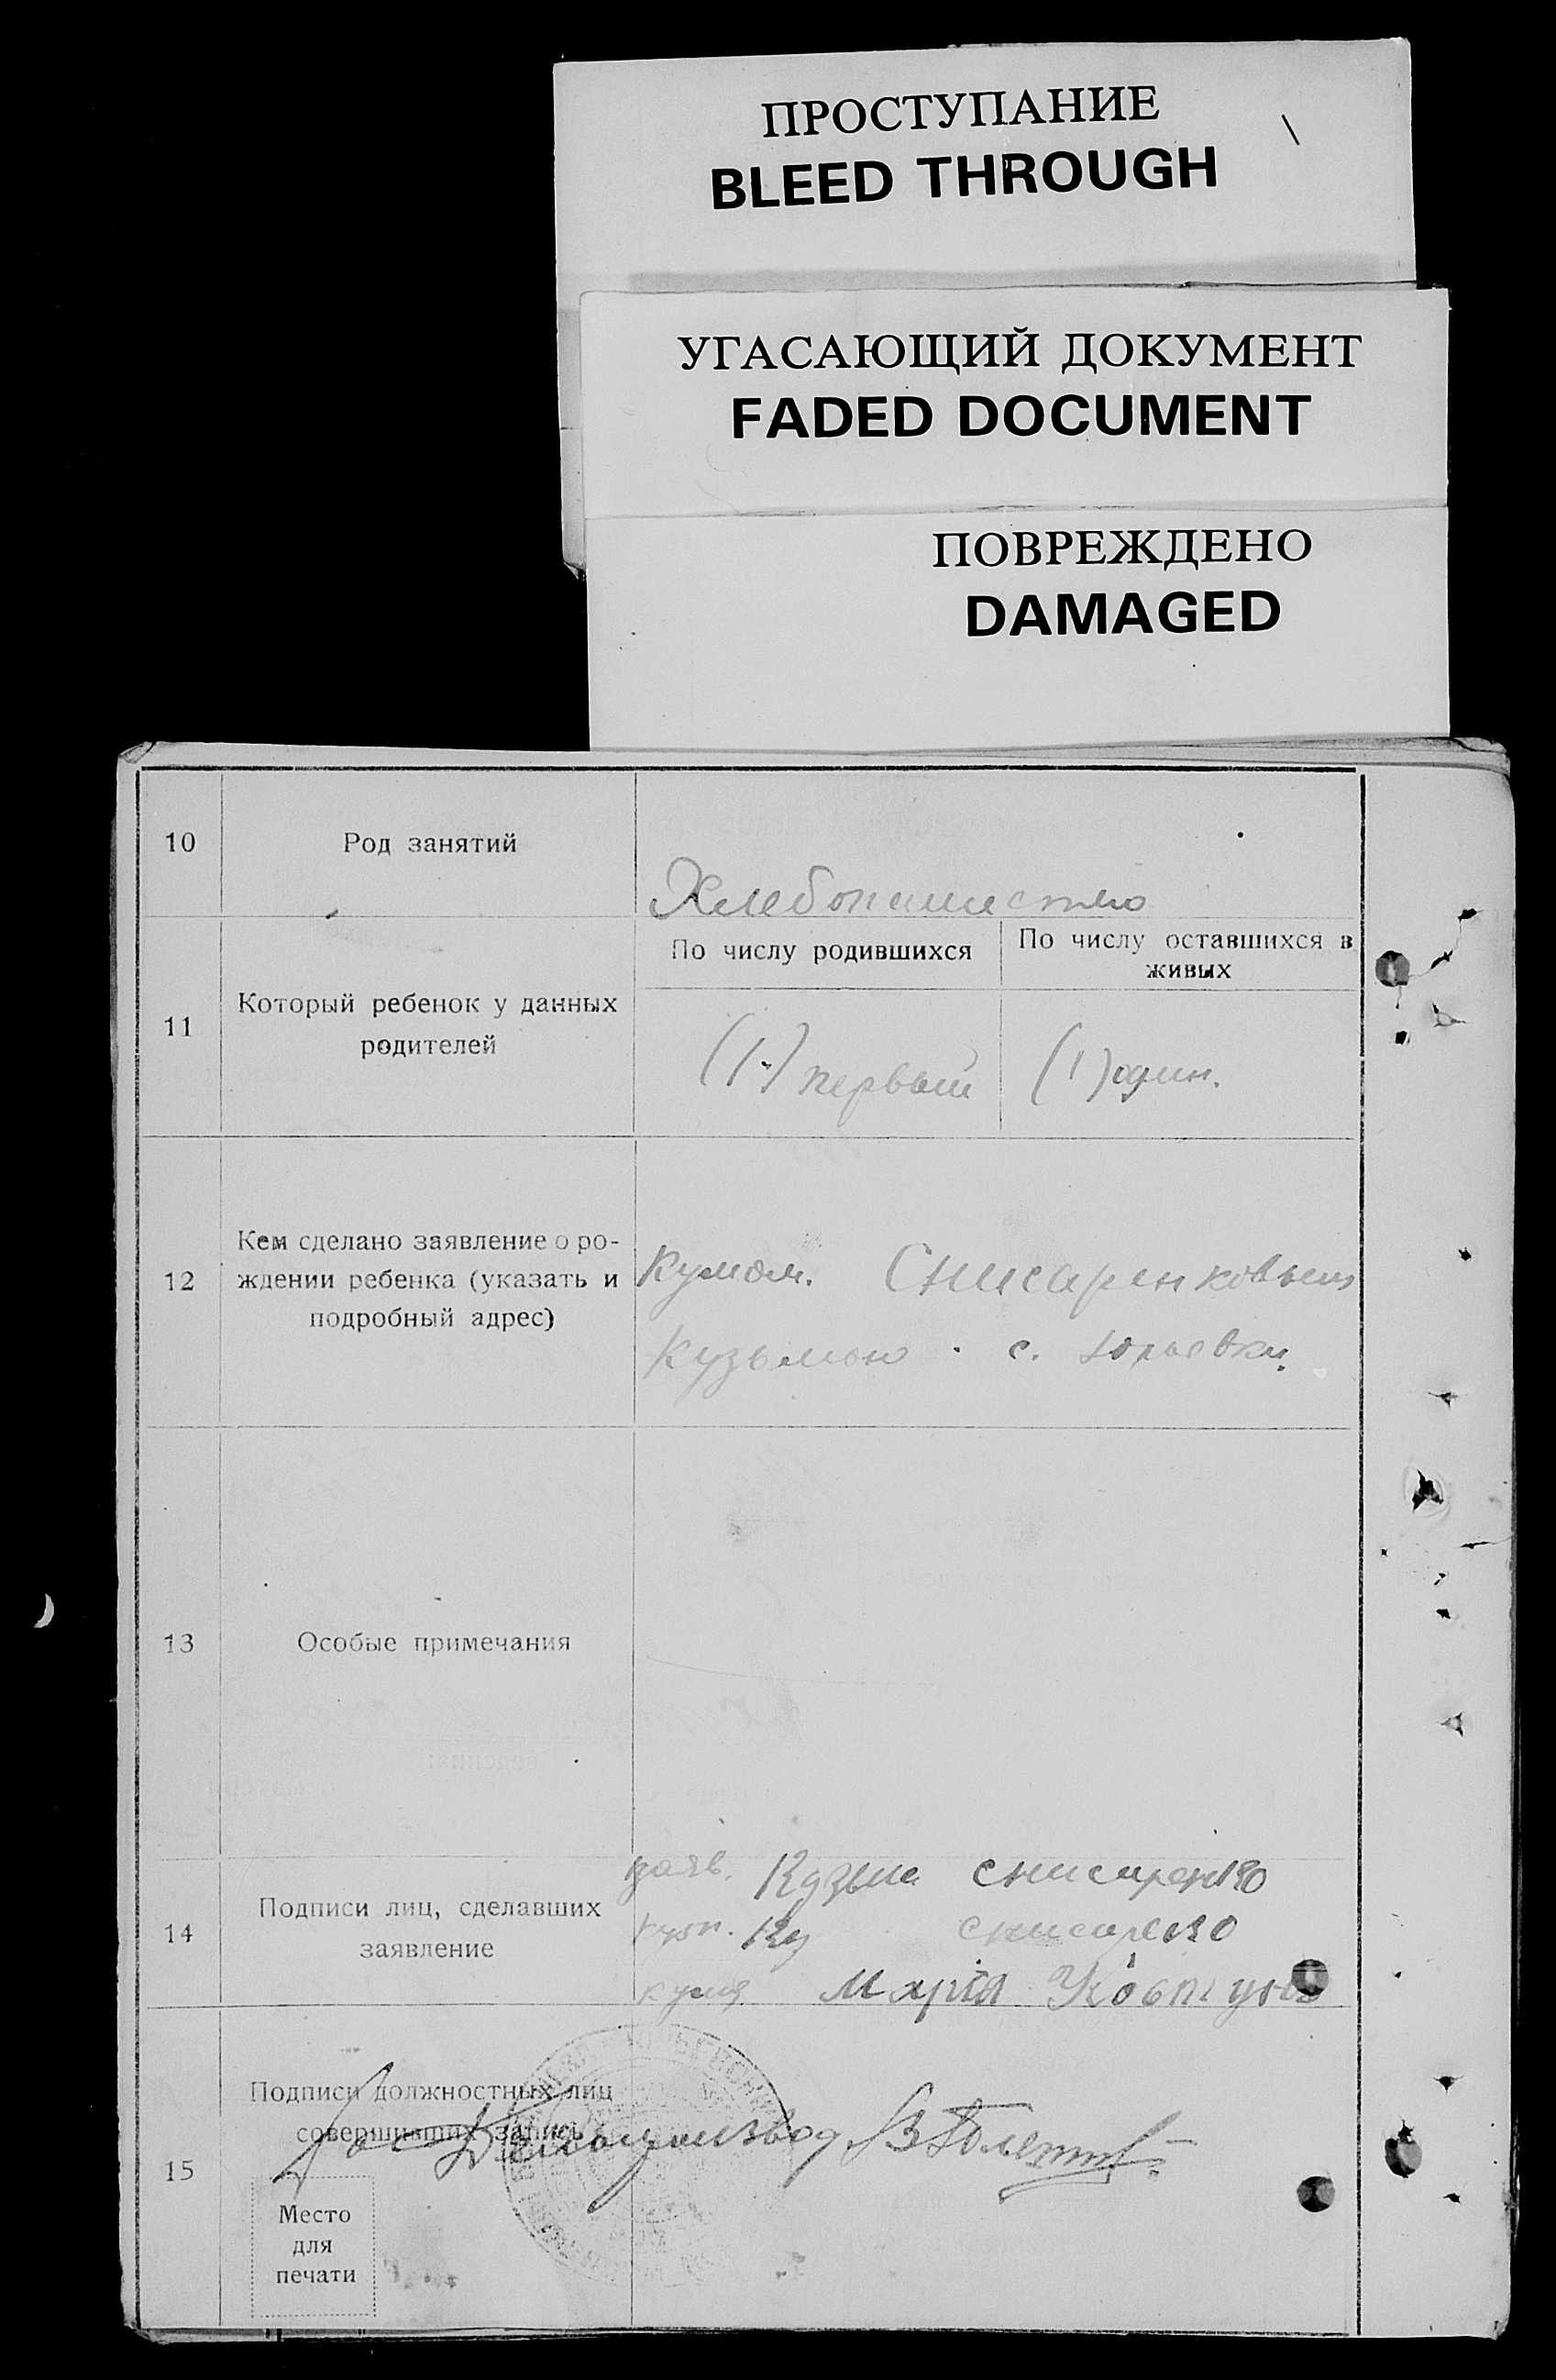 ПРОСТУПАНИЕ
BLEED THROUGH
УГАСАЮЩИЙ ДОКУМЕНТ
FADED DOCUMENT
ПОВРЕЖДЕНО
DAMAGED
10
Род занятий
Хлебопашество
11
Который ребенок у данных
родителей
По числу родившихся
По числу оставшихся в
живых
(1) первый
(1) один.
12
Кем сделано заявление о ро-
ждении ребенка (указать и
подробный адрес)
Кумом. Снисаренковым
Кузьмою. с. Юрьевки.
13
Особые примечания
14
Подписи лиц, сделавших
заявление
заяв. Кузьма Снисаренко
Ку
кума Марія
15
Подписи должностных лиц
совершивших запись
Делопроизвод
Место
для
печати